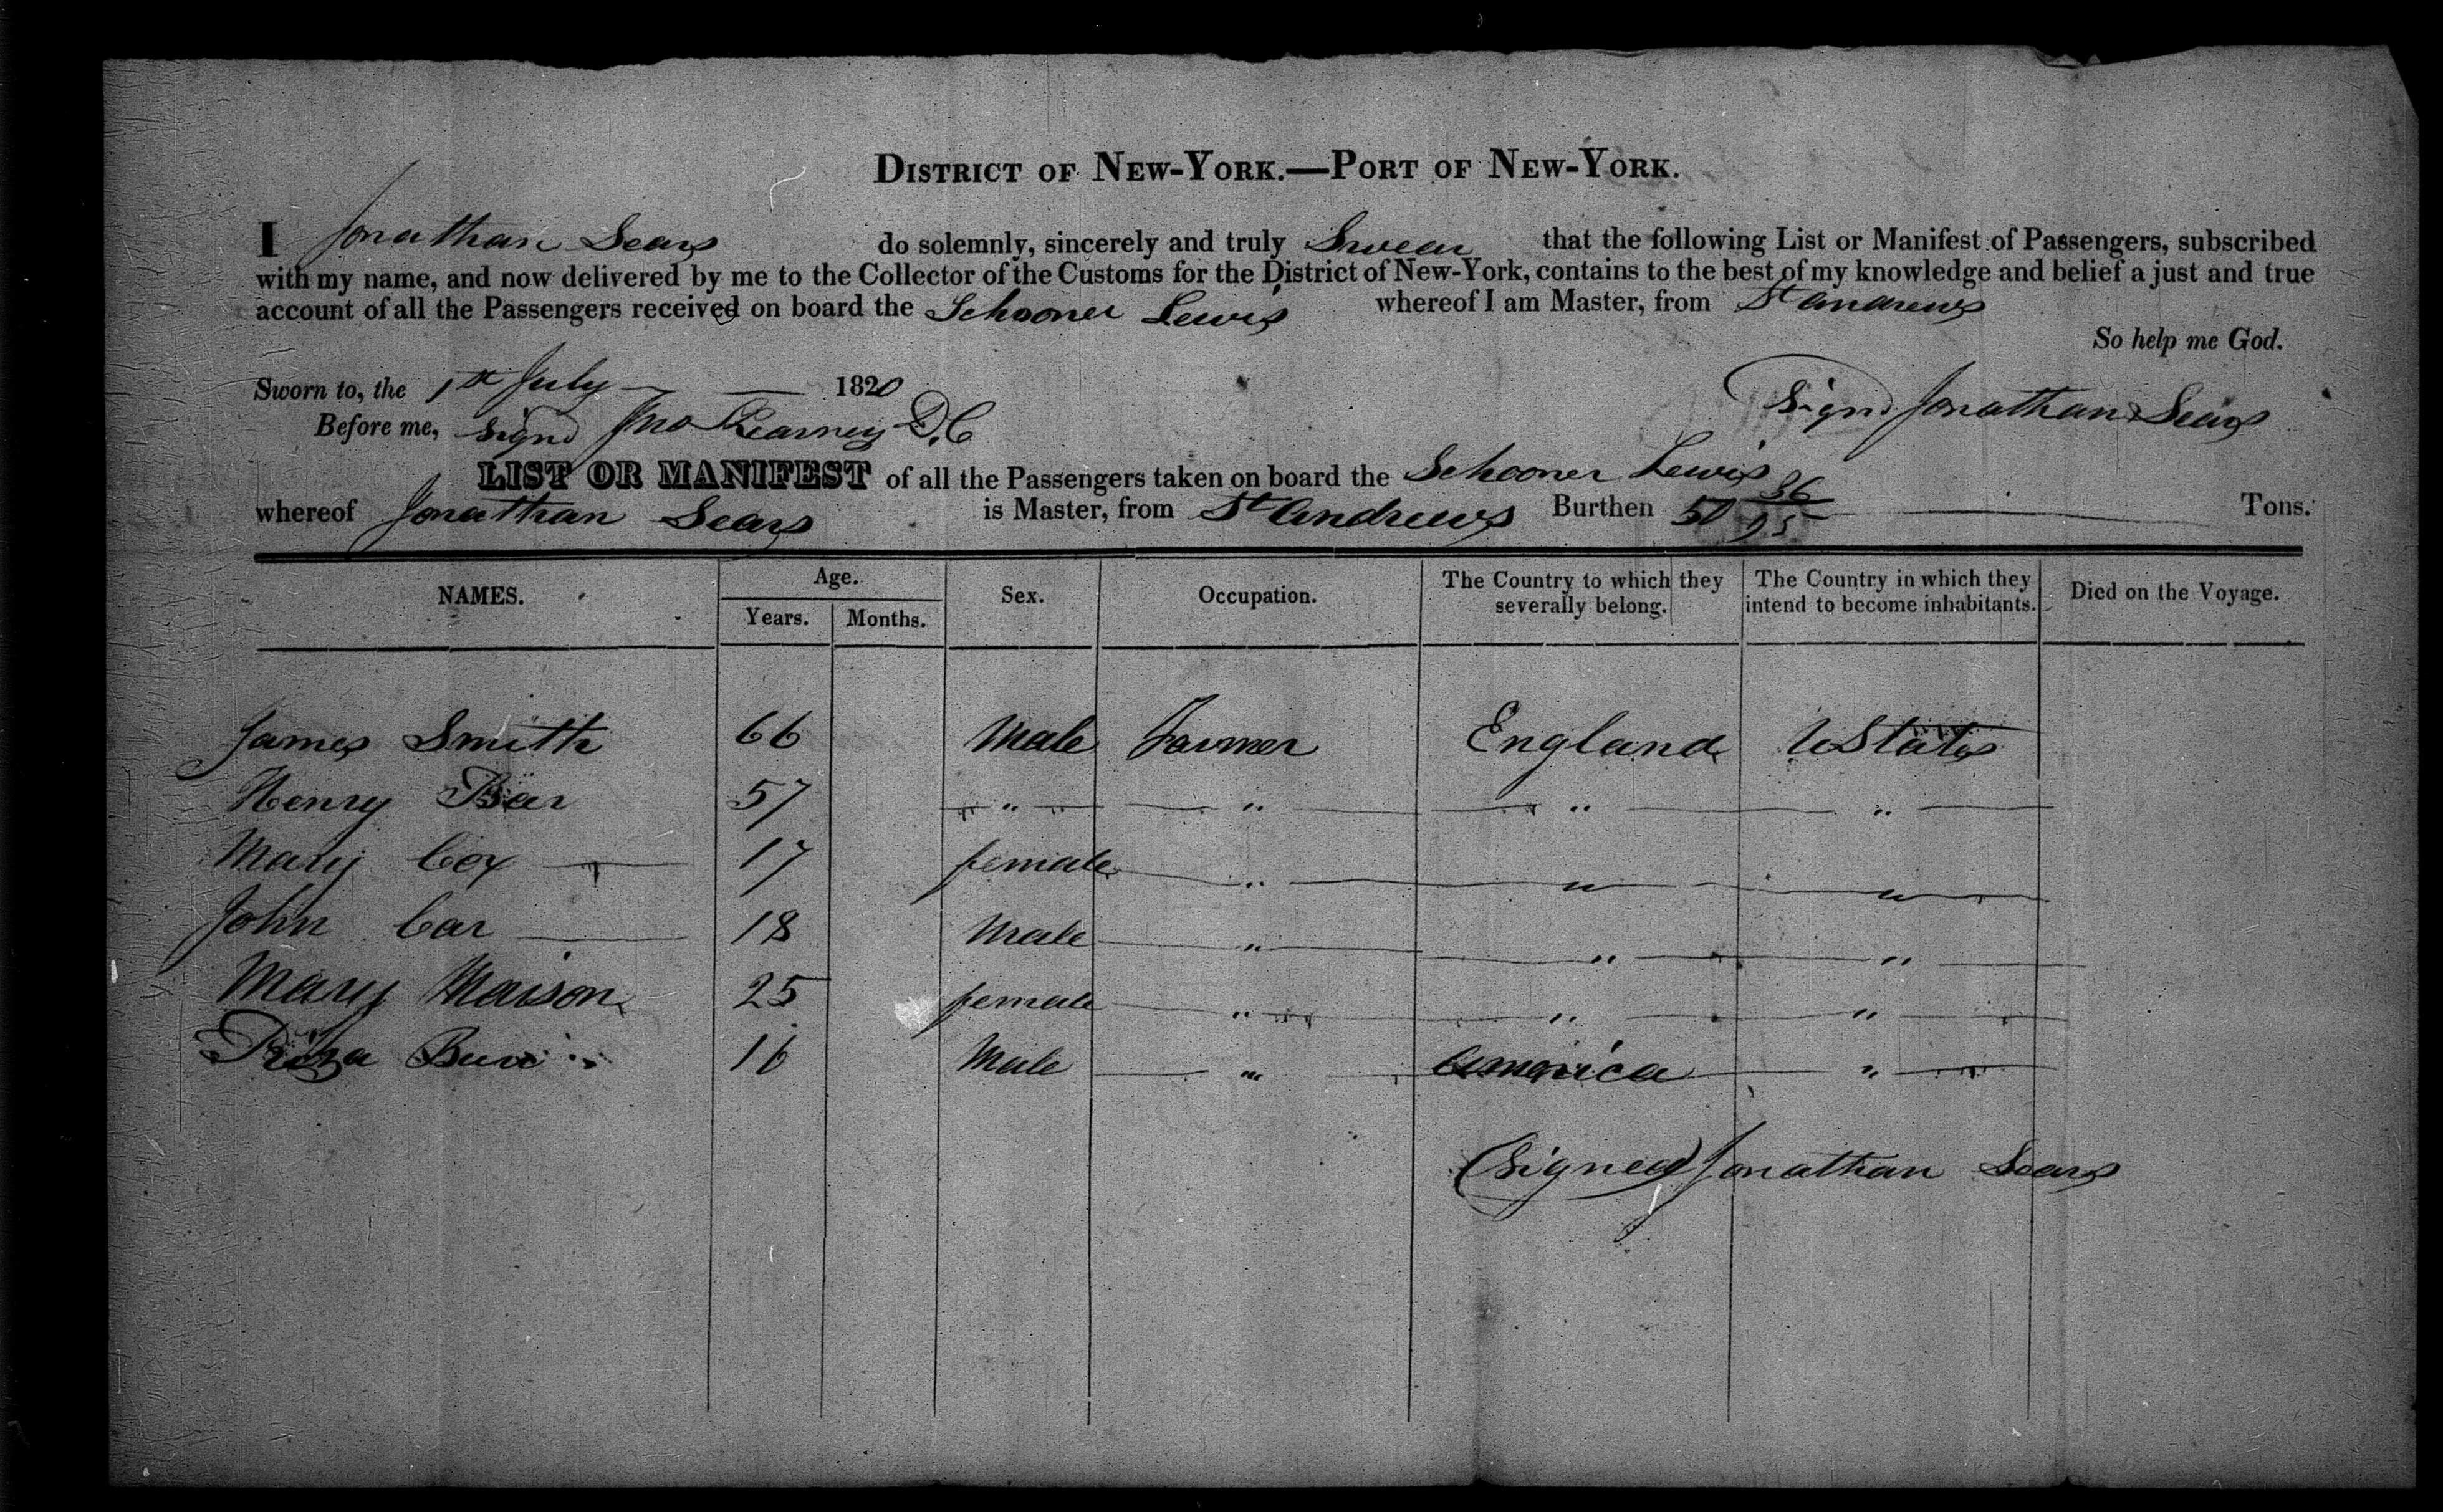 DISTRICT OF NEW-YORK.—PORT OF NEW-YORK.
I Jonathan Sears do solemnly, sincerely and truly Swear that the following List or Manifest of Passengers, subscribed
with my name, and now delivered by me to the Collector of the Customs for the District of New-York, contains to the best of my knowledge and belief a just and true
account of all the Passengers received on board the Schooner Lewis whereof I am Master, from St Andrews
So help me God.
Sworn to, the 1st July 1820
Signd Jonathan Sears
Before me, Signd Jno Kearney D.C
LIST OR MANIFEST of all the Passengers taken on board the Schooner Lewis
whereof Jonathan Sears is Master, from St Andrews Burthen 50 86/95 Tons.
NAMES. Age. Years. Months. Sex. Occupation. The Country to which they severally belong. The Country in which they intend to become inhabitants. Died on the Voyage.
James Smith 66 Male Farmer England UStates
Henry Bar 57 " " " "
Mary Cox 17 female " " "
John Car 18 Male " " "
Mary Maison 25 female " " "
16 Male " America "
(Signed) Jonathan Sears